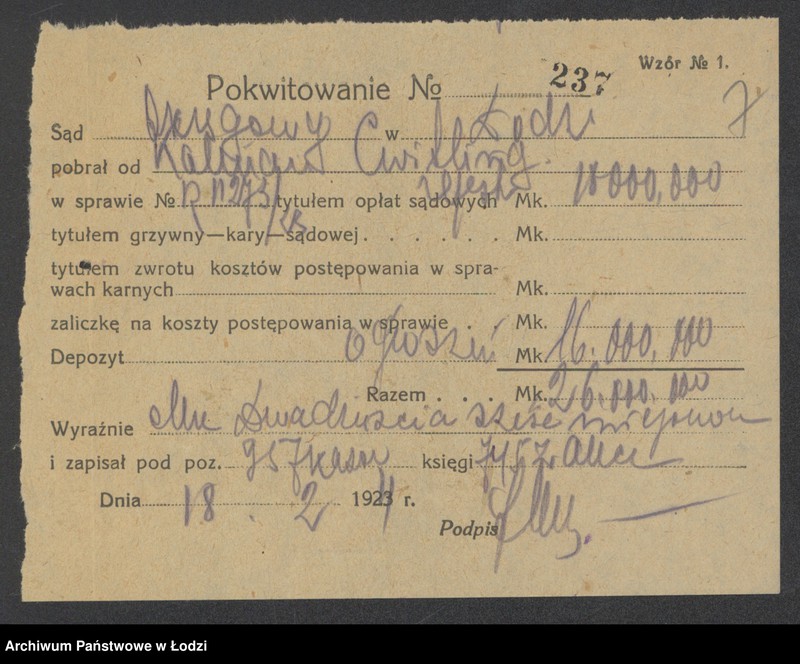 Wzór № 1.
Pokwitowanie № 237
7
Sąd Okręgowy w Łodzi
pobrał od Kalmana Cwilling.
w sprawie № R H 273/23 tytułem opłat sądowych Mk. 10000,000
tytułem grzywny—kary—sądowej . . . . . . Mk.
tytułem zwrotu kosztów postępowania w spra-
wach karnych Mk.
zaliczkę na koszty postępowania w sprawie . . Mk.
Depozyt ogłoszeń Mk. 16.000.000
Razem . . . Mk. 26.000.000
Wyraźnie Mk Dwadzieścia sześć miljonów
i zapisał pod poz. 957 kasy księgi
Dnia 18. 2 1924 r.
Podpis
Archiwum Państwowe w Łodzi